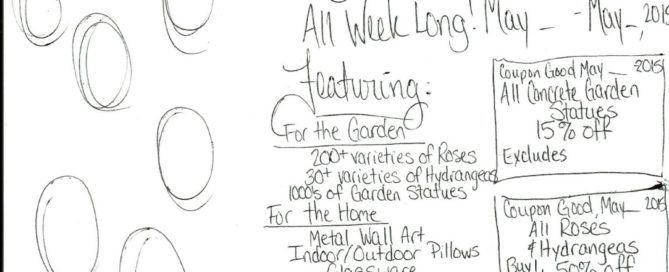 All Week Long! May _ - May _, 2015
Featuring:
For the Garden
200+ varieties of Roses
30+ varieties of Hydrangeas
1000s of Garden Statues
For the Home
Metal Wall Art
Indoor/Outdoor Pillows
Glassware
Coupon Good May __ 2015
All Concrete Garden
Statues
15% off
Excludes
Coupon Good, May__ 2015
All Roses
& Hydrangeas
Buy 1 50% off